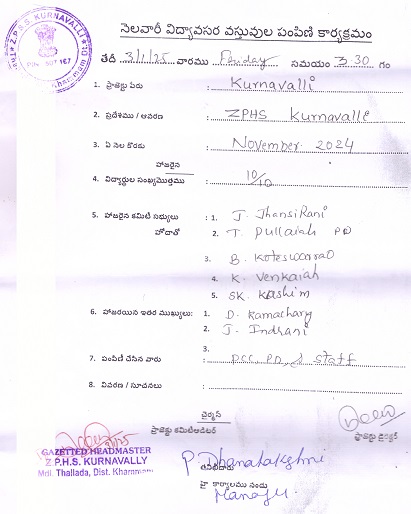 Z.P.H.S. KURNAVALLI
నెలవారీ విద్యావసర వస్తువుల పంపిణి కార్యక్రమం
తేదీ 3/1/25 వారము Friday సమయం 3.30 గం
1. ప్రాజెక్టు పేరు : Kurnavalli
2. ప్రదేశము / ఆవరణ : ZPHS Kurnavalli
3. ఏ నెల కొరకు : November 2024
హాజరైన
4. విద్యార్థుల సంఖ్య/మొత్తము : 10/10
5. హాజరైన కమిటి సభ్యులు : 1. J. JhansiRani
హోదాతో 2. T. Pullaiah PD
3. B. Koteswarrao
4. K. Venkaiah
5. SK. Kashim
6. హాజరయిన ఇతర ముఖ్యులు: 1. D. Kamachary
2. J. Indrani
3.
7. పంపిణి చేసిన వారు : PCC, PD, & Staff
8. వివరణ / సూచనలు :
చైర్మన్
ప్రాజెక్టు కమిటి/ఆడిటర్
ప్రాజెక్టు డైరెక్టర్
GAZETTED HEADMASTER
Z.P.H.S. KURNAVALLY
Mdl. Thallada, Dist. Khammam
P. Dhanalakshmi
తనిఖీదారు
హై కార్యాలయం నందు
Manager